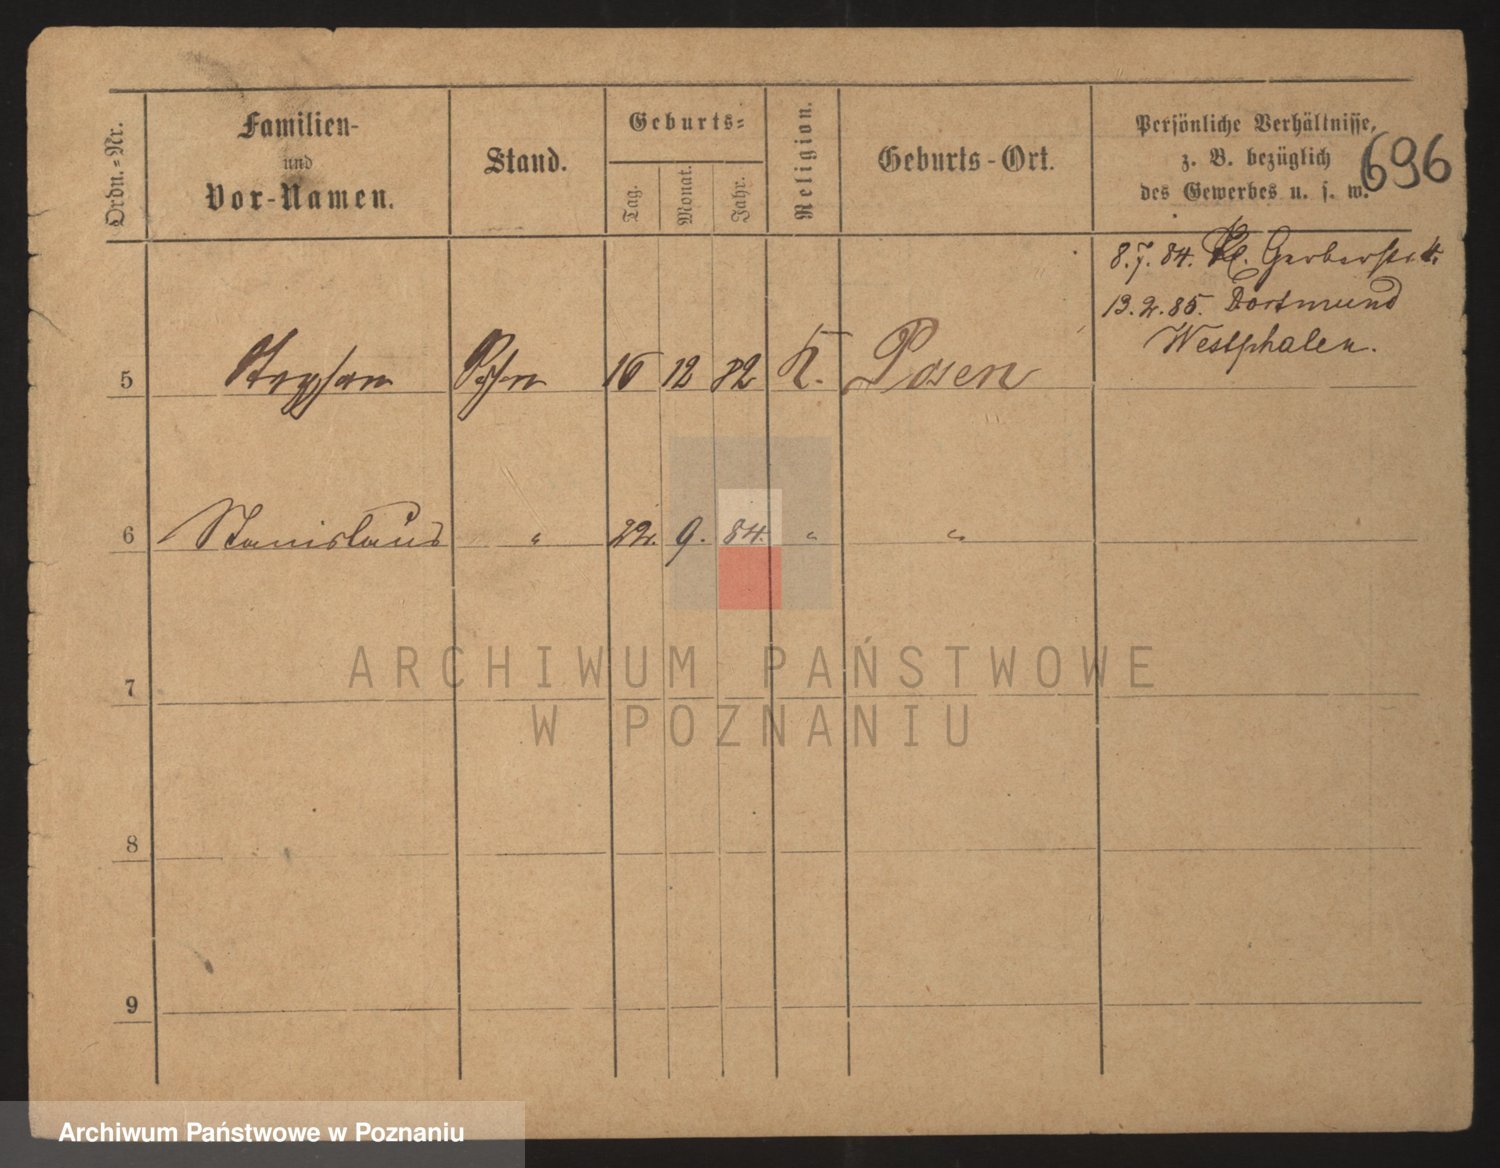 Ordn.-Nr.
Familien-
und
Vor-Namen.
Stand.
Geburts-
Tag.
Monat.
Jahr.
Religion.
Geburts-Ort.
Persönliche Verhältnisse,
z. B. bezüglich
des Gewerbes u. s. w.
696
8.7.84. Kl. Gerberstr. 4.
13.2.85. Dortmund
Westphalen.
5 Stephan Sohn 16 12 82 K. Posen
6 Stanislaus " 22. 9. 84. " "
7
8
9
ARCHIWUM PAŃSTWOWE
W POZNANIU
Archiwum Państwowe w Poznaniu